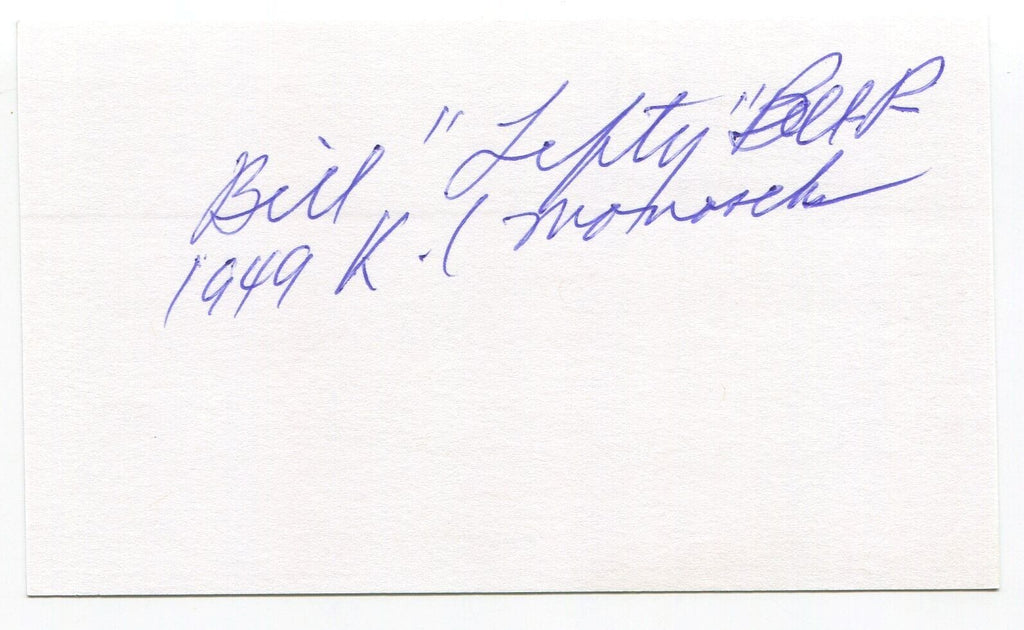 Bill "Lefty" Bell
1949 K.C Monarch